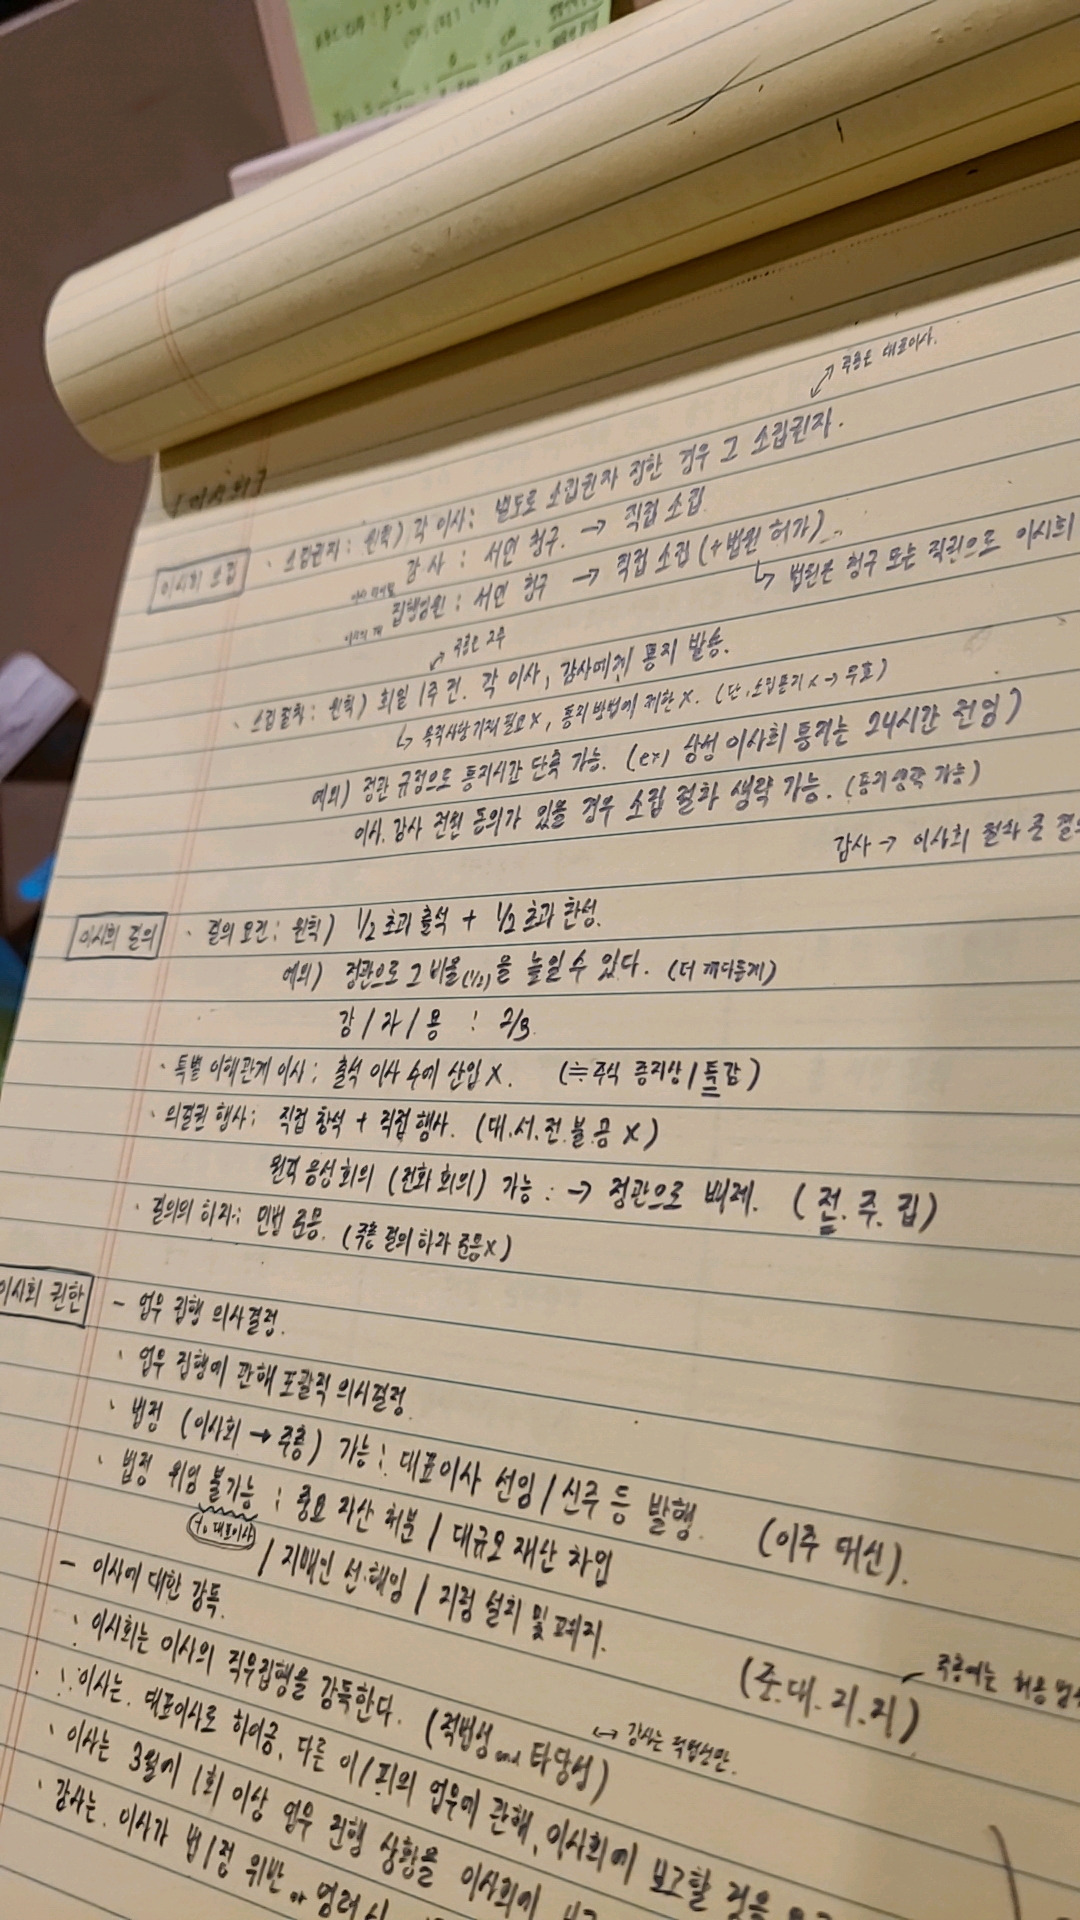 [이사회]
↔ 주총은 대표이사.
이사회 소집 · 소집권자 : 원칙) 각 이사 : 별도로 소집권자 정한 경우 그 소집권자.
감사 : 서면 청구. → 직접 소집
집행임원 : 서면 청구 → 직접 소집 (+법원 허가)
↳ 법원은 청구 또는 직권으로 이사회
↔ 주총은 2주
· 소집절차 : 원칙) 회일 1주 전. 각 이사, 감사에게 통지 발송.
↳ 목적사항 기재 필요 X, 통지 방법에 제한 X. (단, 소집통지 X → 무효)
예외) 정관 규정으로 통지시간 단축 가능. (ex) 삼성 이사회 통지는 24시간 전임)
이사. 감사 전원 동의가 있을 경우 소집 절차 생략 가능. (통지 생략 가능)
감사 → 이사회 절차
이사회 결의 · 결의 요건 : 원칙) 1/2 초과 출석 + 1/2 초과 찬성.
예외) 정관으로 그 비율(1/2)을 높일 수 있다. (더 까다롭게)
감 / 자 / 용 : 2/3
· 특별 이해관계 이사 : 출석 이사 수에 산입 X. (≒주식 / 특감)
· 의결권 행사 : 직접 참석 + 직접 행사. (대.서.전.불.공 X)
원격 음성 회의 (전화 회의) 가능 : → 정관으로 배제. (전. 주. 집)
· 결의의 하자 : 민법 준용. (주총 결의 하자 준용 X)
이사회 권한 - 업무 집행 의사결정.
· 업무 집행에 관해 포괄적 의사결정
· 법정 (이사회 → 주총) 가능 : 대표이사 선임 / 신주 등 발행. (이주 대신).
· 법정 위임 불가능 : 중요 자산 처분 / 대규모 재산 차입
to 대표이사
/ 지배인 선·해임 / 지점 설치 및 폐지. (중. 대. 지. 지)
주총에는 허용
- 이사에 대한 감독.
· 이사회는 이사의 직무집행을 감독한다. (적법성 and 타당성)
↔ 감사는 적법성만.
∴ 이사는. 대표이사로 하여금, 다른 이/피의 업무에 관해, 이사회에 보고할 것을
· 이사는 3월에 1회 이상 업무 집행 상황을 이사회에
· 감사는. 이사가 법/정 위반 or 염려시